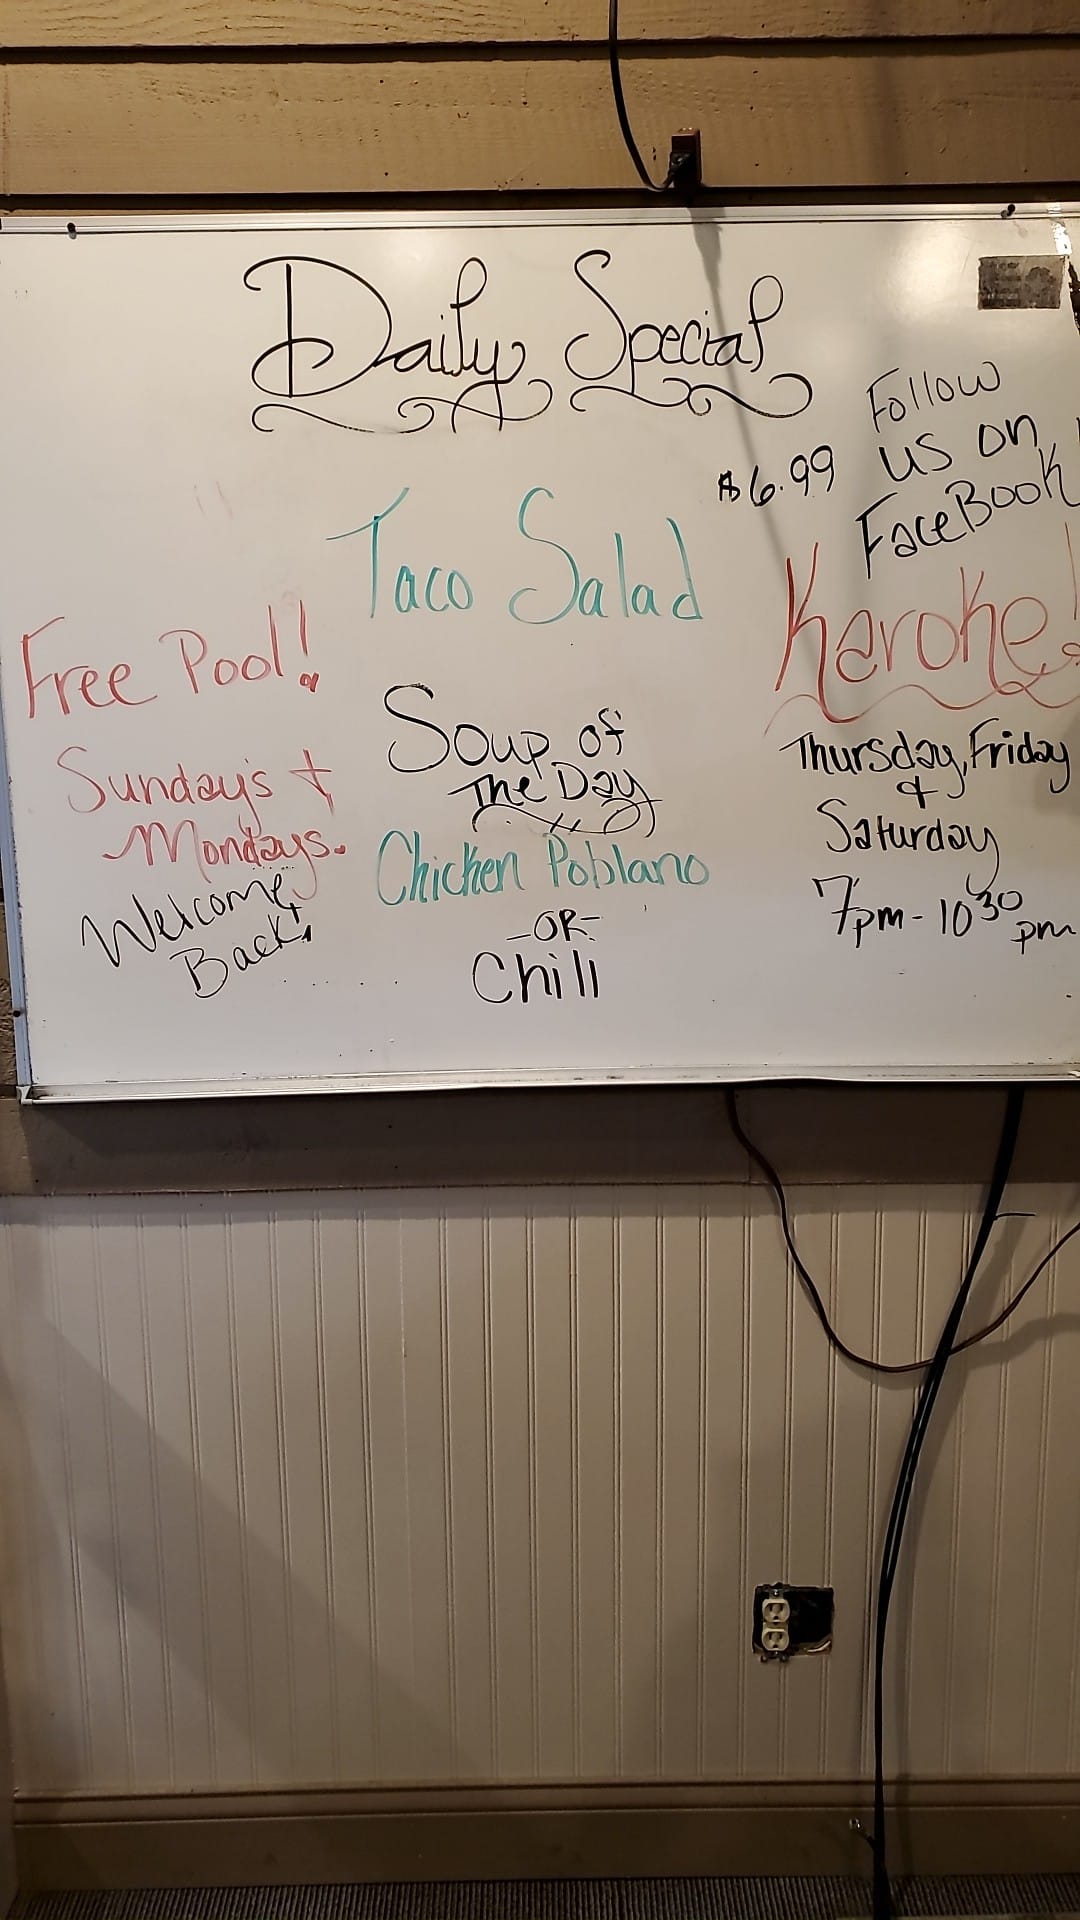 Daily Special
$6.99
Taco Salad
Soup of
The Day
Chicken Poblano
-OR-
Chili
Free Pool!
Sunday's +
Mondays.
Welcome
Back!
Follow
us on
FaceBook
Karoke!
Thursday, Friday
&
Saturday
7pm - 10 30 pm